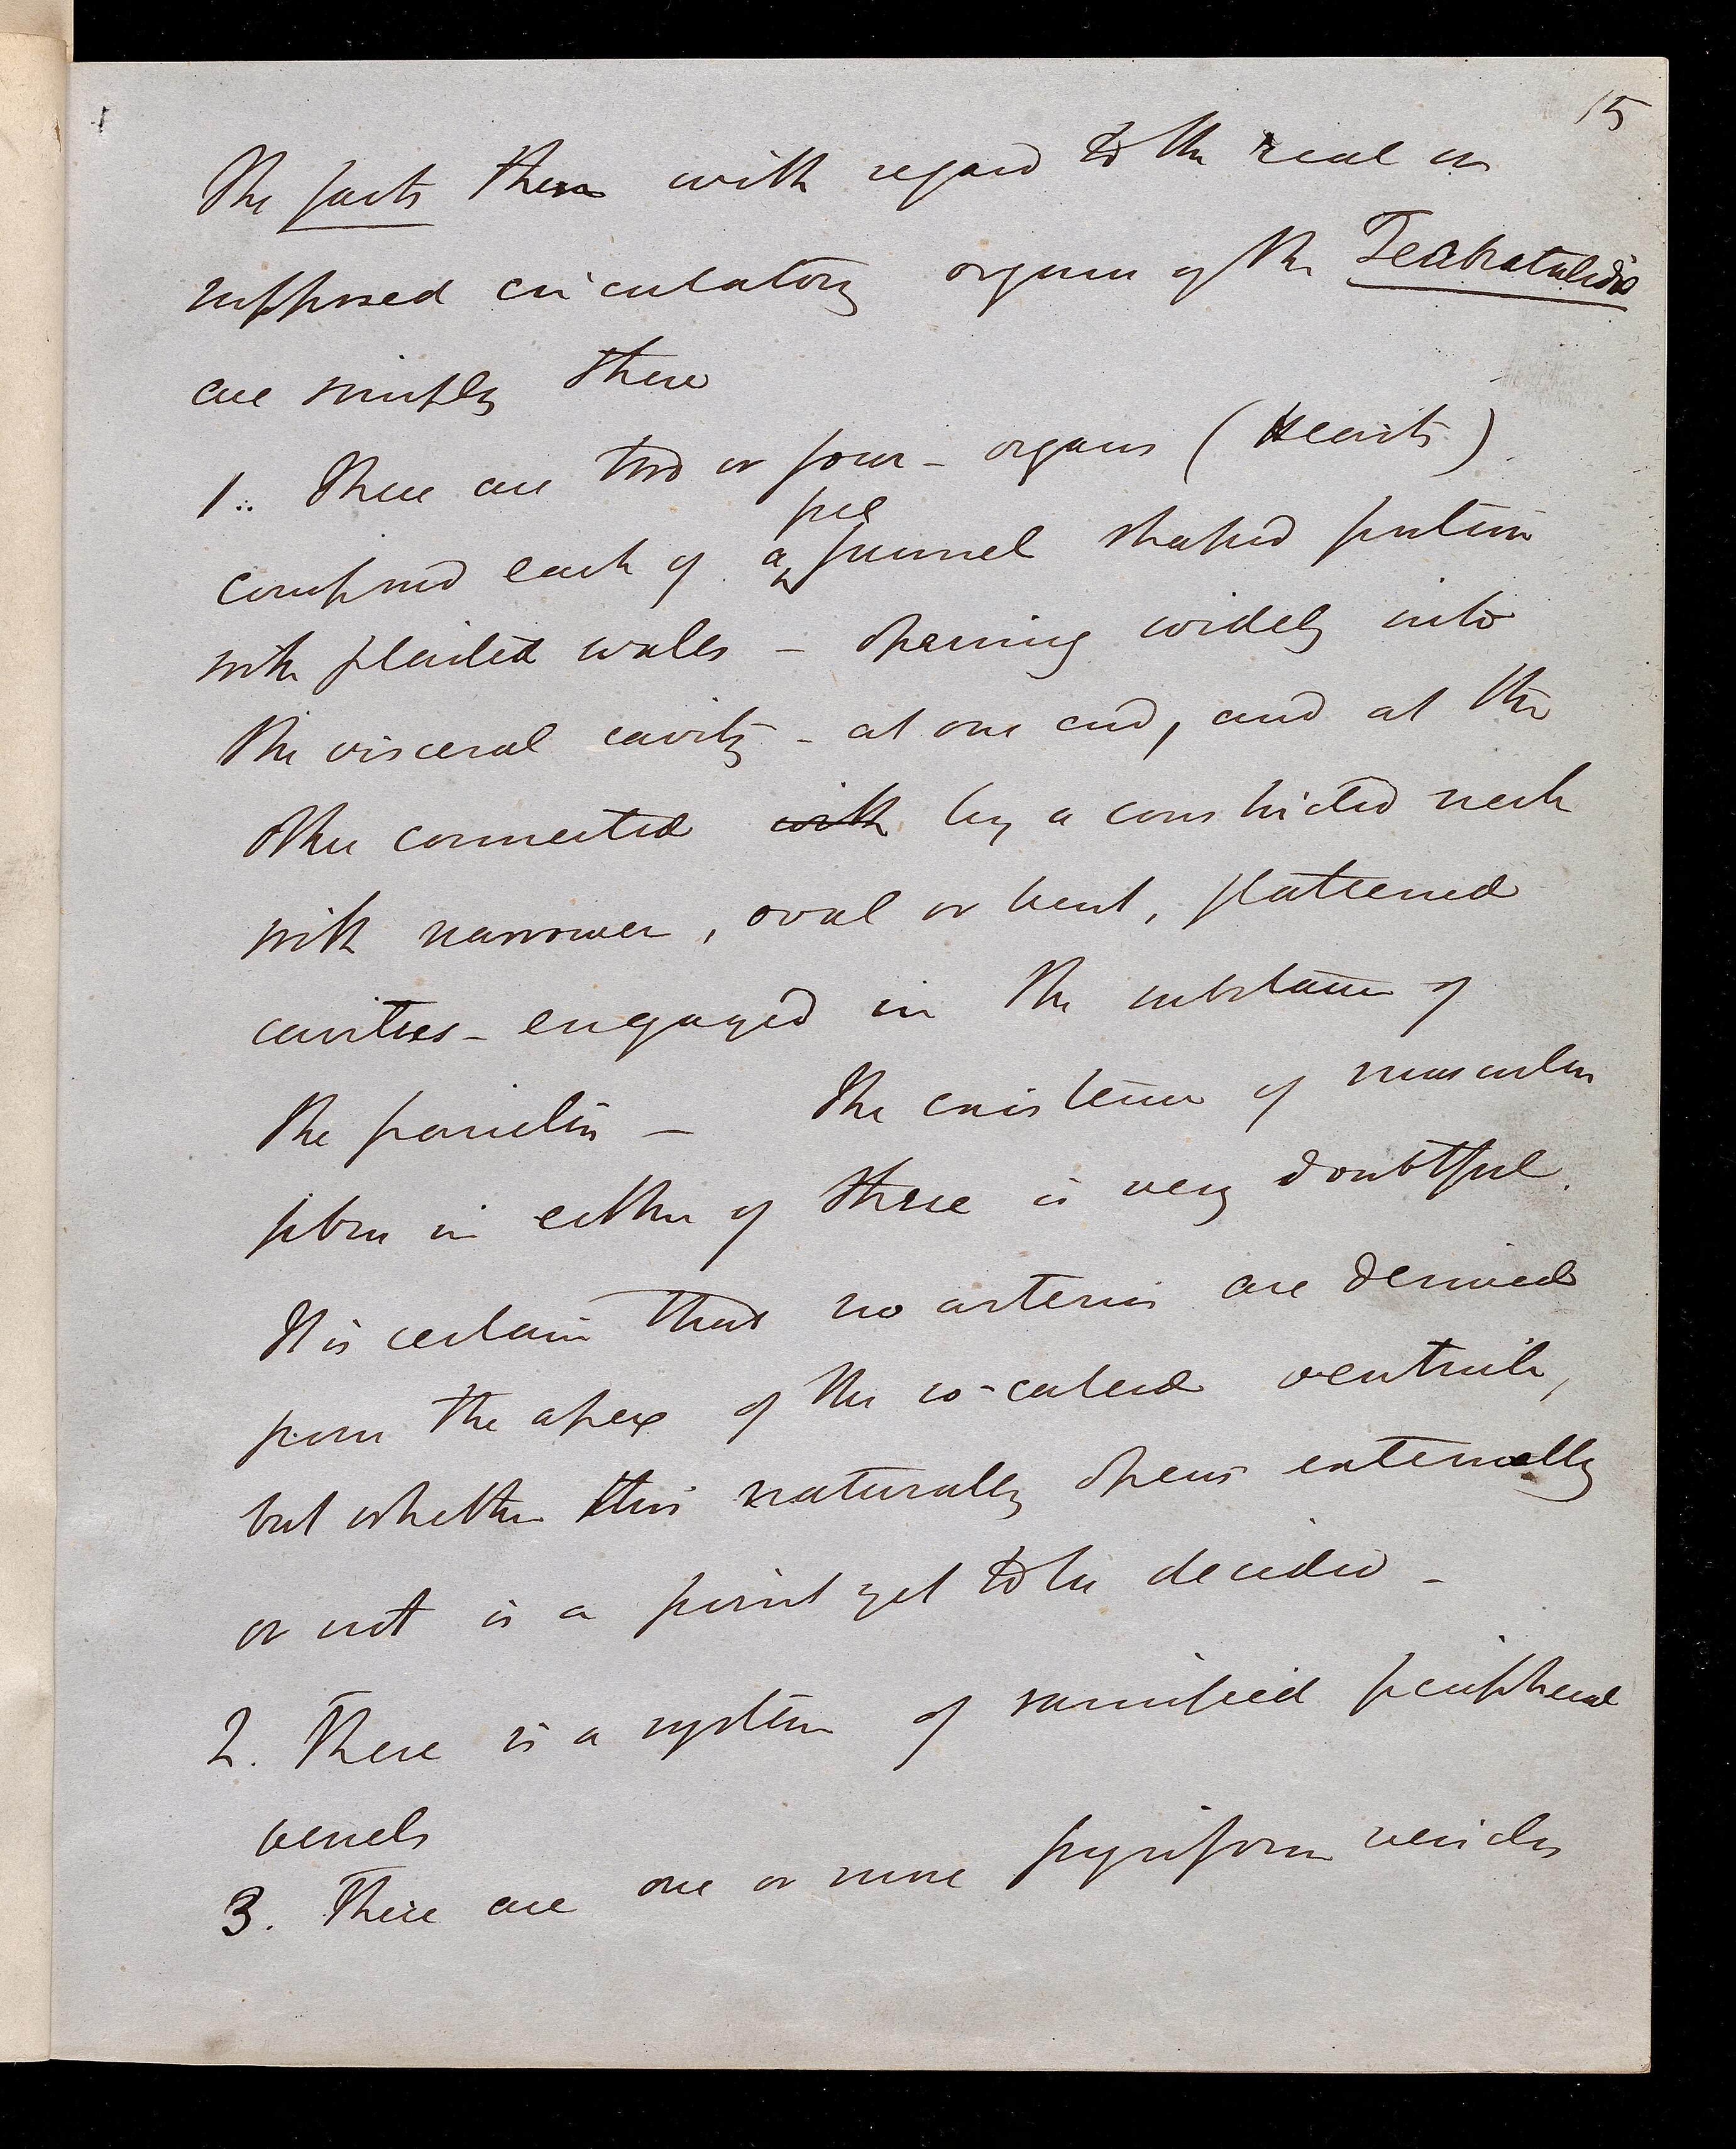 15
The facts then with regard to the real or
supposed circulatory organs of the Terebratulidæ
are simply these
1. There are two or four – organs (Hearts)
free
composed each of a funnel shaped portion
with plaited walls – opening widely into
the visceral cavity – at one end, and at the
other connected with by a constricted neck
with narrower, oval or bent, flattened
cavities – engaged in the substance of
the parietes – The existence of muscular
fibres in either of these is very doubtful.
It is certain that no arteries are derived
from the apex of the so-called ventricle,
but whether this naturally opens externally
or not is a point yet to be decided –
2. There is a system of ramified peripheral
vessels
3. There are one or more pyriform vesicles